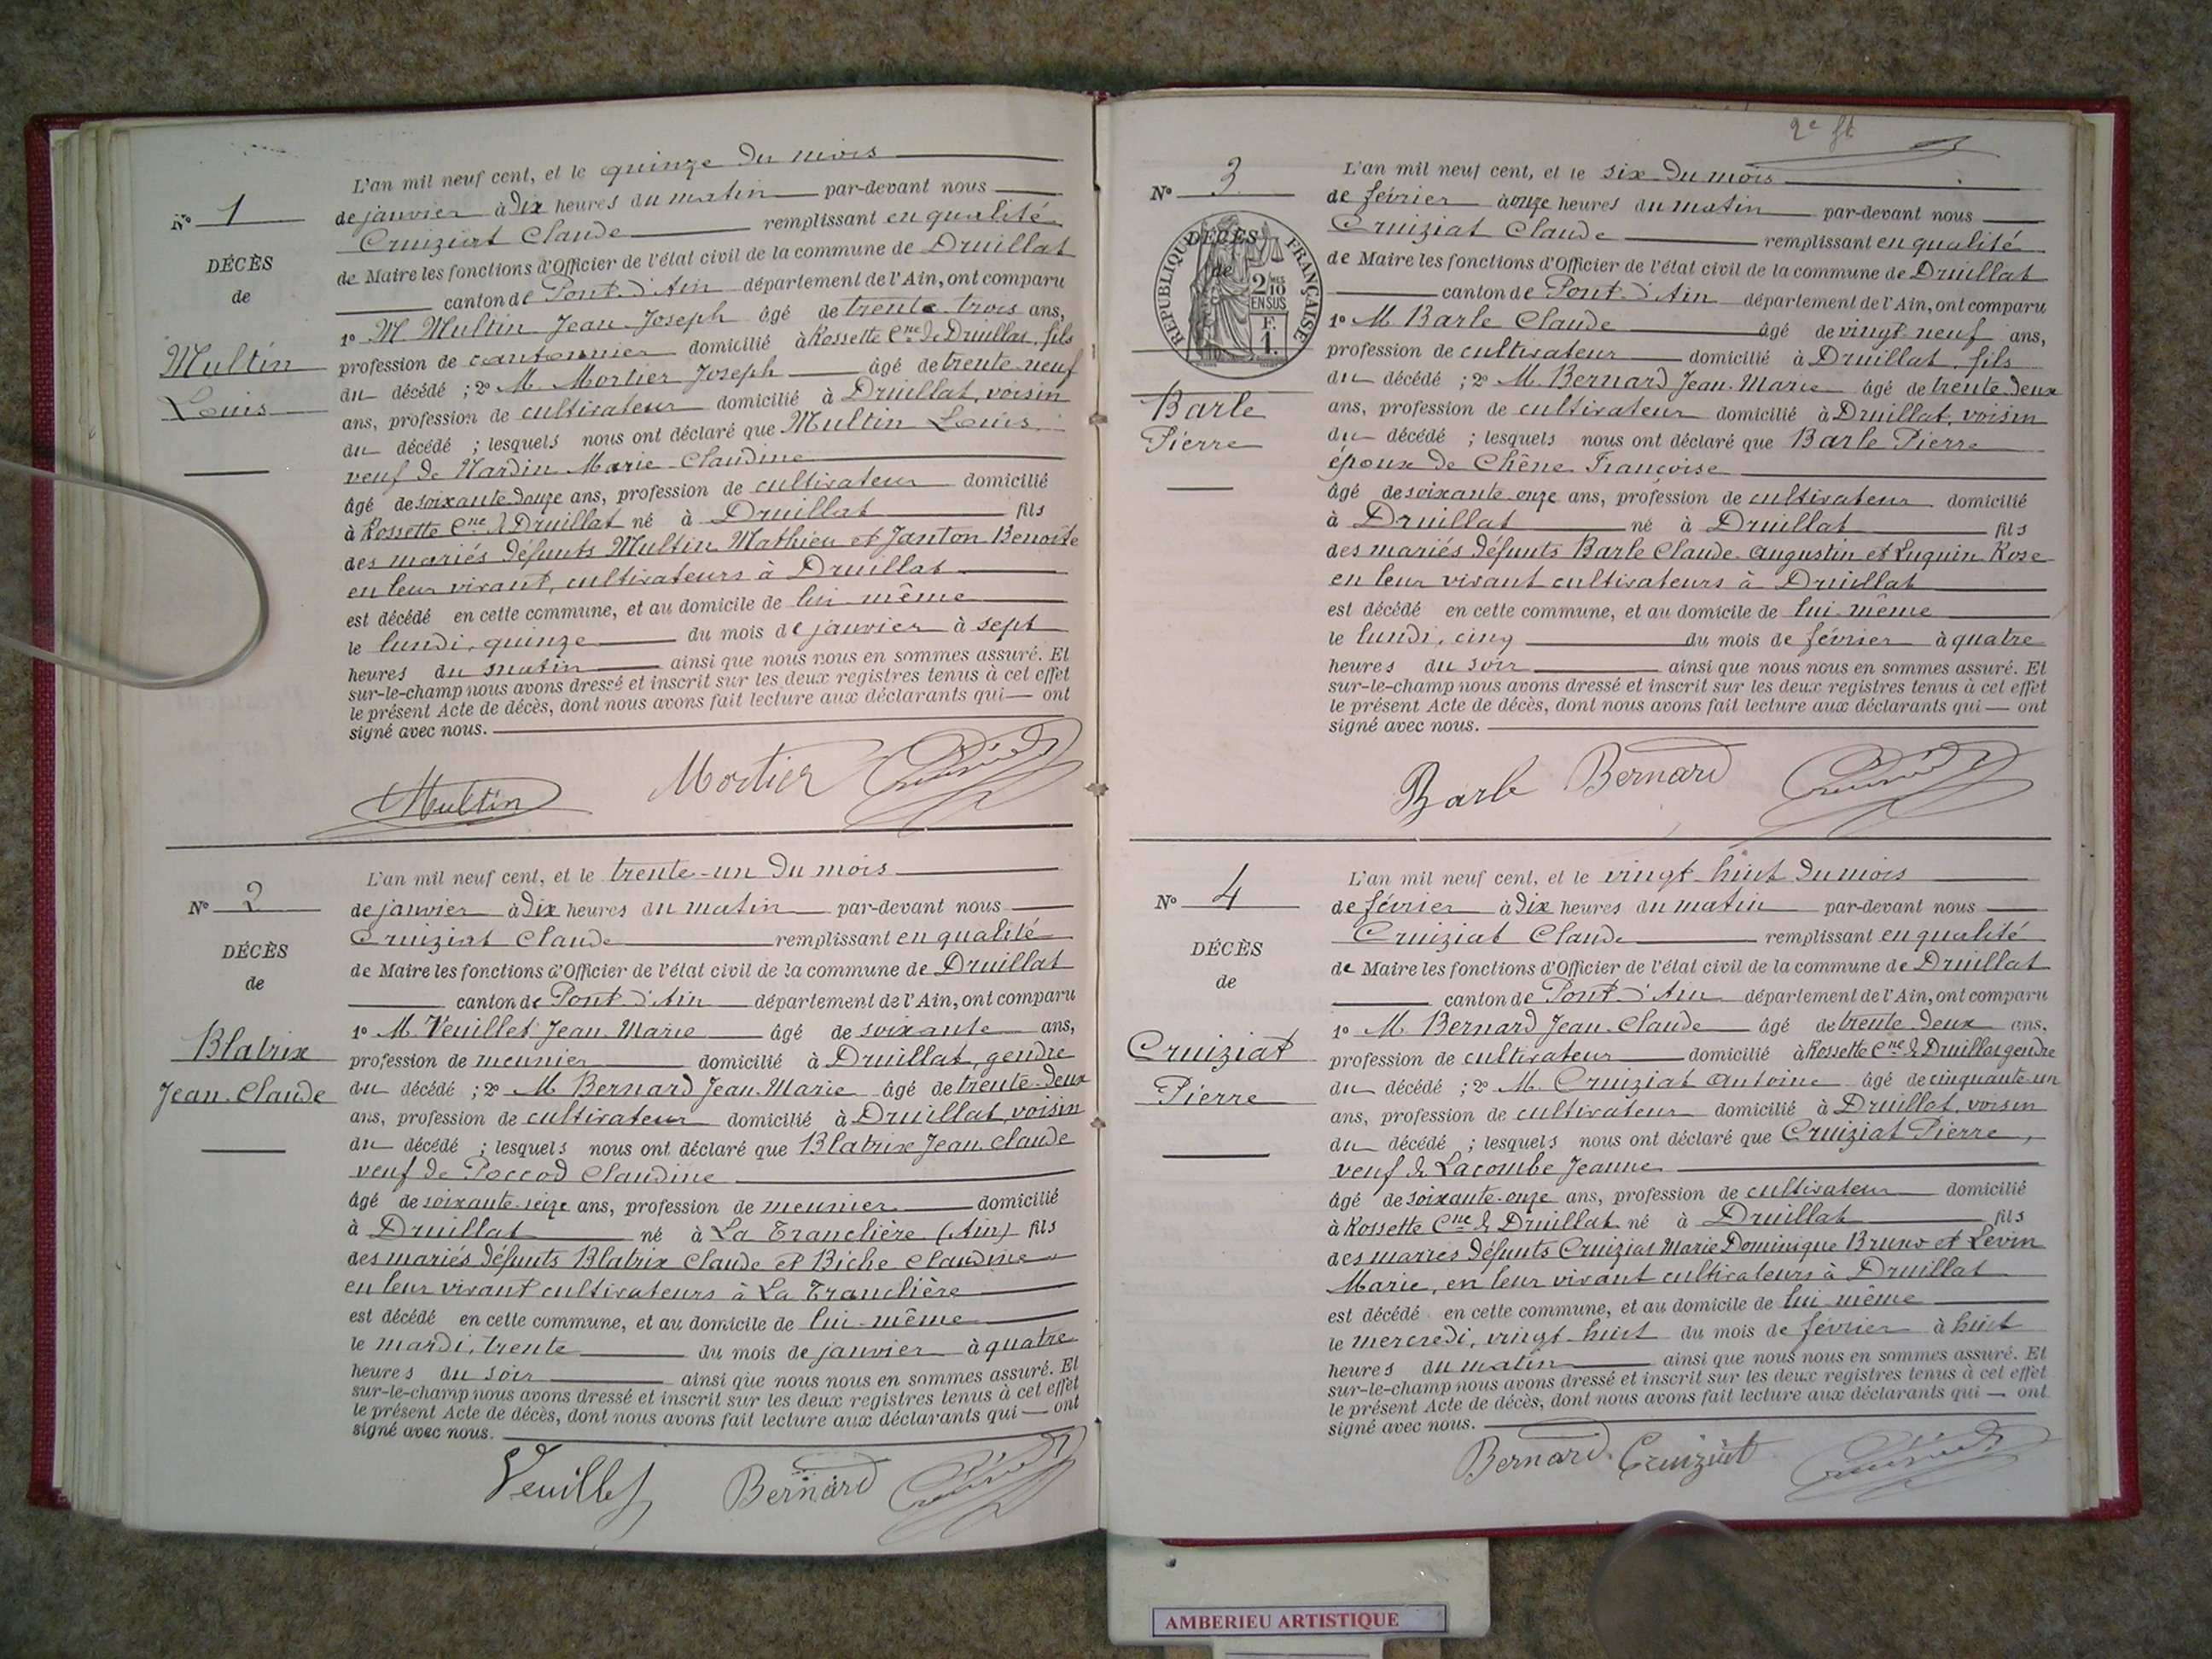 L'an mil neuf cent, et le quinze du mois
N° 1
de janvier à dix heures du matin par-devant nous
Cruiziat Claude remplissant en qualité
DÉCÈS
de
de Maire les fonctions d'Officier de l'état civil de la commune de Druillat
canton de Pont-d'Ain département de l'Ain, ont comparu
1° M Multin Jean-Joseph âgé de trente-trois ans,
Multin
Louis
profession de cantonnier domicilié à Rossette Cne de Druillat, fils
du décédé ; 2° M. Mortier Joseph âgé de trente-neuf
ans, profession de cultivateur domicilié à Druillat, voisin
du décédé ; lesquels nous ont déclaré que Multin Louis
veuf de Nardin Marie-Claudine
âgé de soixante-douze ans, profession de cultivateur domicilié
à Rossette Cne de Druillat né à Druillat fils
des mariés défunts Multin Mathieu et Janton Benoîte
en leur vivant, cultivateurs à Druillat
est décédé en cette commune, et au domicile de lui-même
le lundi, quinze du mois de janvier à sept
heures du matin ainsi que nous nous en sommes assuré. Et
sur-le-champ nous avons dressé et inscrit sur les deux registres tenus à cet effet
le présent Acte de décès, dont nous avons fait lecture aux déclarants qui ont
signé avec nous.
Multin Mortier Cruiziat
L'an mil neuf cent, et le trente-un du mois
N° 2
de janvier à dix heures du matin par-devant nous
Cruiziat Claude remplissant en qualité
DÉCÈS
de
de Maire les fonctions d'Officier de l'état civil de la commune de Druillat
canton de Pont-d'Ain département de l'Ain, ont comparu
1° M. Veuillet Jean-Marie âgé de soixante ans,
Blatrix
Jean-Claude
profession de meunier domicilié à Druillat, gendre
du décédé ; 2° M Bernard Jean-Marie âgé de trente-deux
ans, profession de cultivateur domicilié à Druillat, voisin
du décédé ; lesquels nous ont déclaré que Blatrix Jean-Claude
veuf de Poccod Claudine
âgé de soixante-seize ans, profession de meunier domicilié
à Druillat né à La Tranclière (Ain) fils
des mariés défunts Blatrix Claude et Biche Claudine
en leur vivant cultivateurs à La Tranclière
est décédé en cette commune, et au domicile de lui-même
le mardi, trente du mois de janvier à quatre
heures du soir ainsi que nous nous en sommes assuré. Et
sur-le-champ nous avons dressé et inscrit sur les deux registres tenus à cet effet
le présent Acte de décès, dont nous avons fait lecture aux déclarants qui ont
signé avec nous.
Veuillet Bernard Cruiziat
2e ft
L'an mil neuf cent, et le six du mois
N° 3
de février à onze heures du matin par-devant nous
Cruiziat Claude remplissant en qualité
DÉCÈS
de
RÉPUBLIQUE FRANÇAISE
2/10 EN SUS
F. 1.
de Maire les fonctions d'Officier de l'état civil de la commune de Druillat
canton de Pont-d'Ain département de l'Ain, ont comparu
1° M Barle Claude âgé de vingt-neuf ans,
profession de cultivateur domicilié à Druillat, fils
du décédé ; 2° M. Bernard Jean-Marie âgé de trente-deux
Barle
Pierre
ans, profession de cultivateur domicilié à Druillat, voisin
du décédé ; lesquels nous ont déclaré que Barle Pierre
époux de Chêne Françoise
âgé de soixante-onze ans, profession de cultivateur domicilié
à Druillat né à Druillat fils
des mariés défunts Barle Claude-Augustin et Luquin Rose
en leur vivant cultivateurs à Druillat
est décédé en cette commune, et au domicile de lui-même
le lundi, cinq du mois de février à quatre
heures du soir ainsi que nous nous en sommes assuré. Et
sur-le-champ nous avons dressé et inscrit sur les deux registres tenus à cet effet
le présent Acte de décès, dont nous avons fait lecture aux déclarants qui ont
signé avec nous.
Barle Bernard Cruiziat
L'an mil neuf cent, et le vingt-huit du mois
N° 4
de février à dix heures du matin par-devant nous
Cruiziat Claude remplissant en qualité
DÉCÈS
de
de Maire les fonctions d'Officier de l'état civil de la commune de Druillat
canton de Pont-d'Ain département de l'Ain, ont comparu
1° M. Bernard Jean-Claude âgé de trente-deux ans,
Cruiziat
Pierre
profession de cultivateur domicilié à Rossette Cne de Druillat gendre
du décédé ; 2° M. Cruiziat Antoine âgé de cinquante-un
ans, profession de cultivateur domicilié à Druillat, voisin
du décédé ; lesquels nous ont déclaré que Cruiziat Pierre,
veuf de Lacombe Jeanne
âgé de soixante-onze ans, profession de cultivateur domicilié
à Rossette Cne de Druillat né à Druillat fils
des mariés défunts Cruiziat Marie Dominique Bruno et Levin
Marie, en leur vivant cultivateurs à Druillat
est décédé en cette commune, et au domicile de lui-même
le mercredi, vingt-huit du mois de février à huit
heures du matin ainsi que nous nous en sommes assuré. Et
sur-le-champ nous avons dressé et inscrit sur les deux registres tenus à cet effet
le présent Acte de décès, dont nous avons fait lecture aux déclarants qui ont
signé avec nous.
Bernard Cruiziat Cruiziat
AMBERIEU ARTISTIQUE